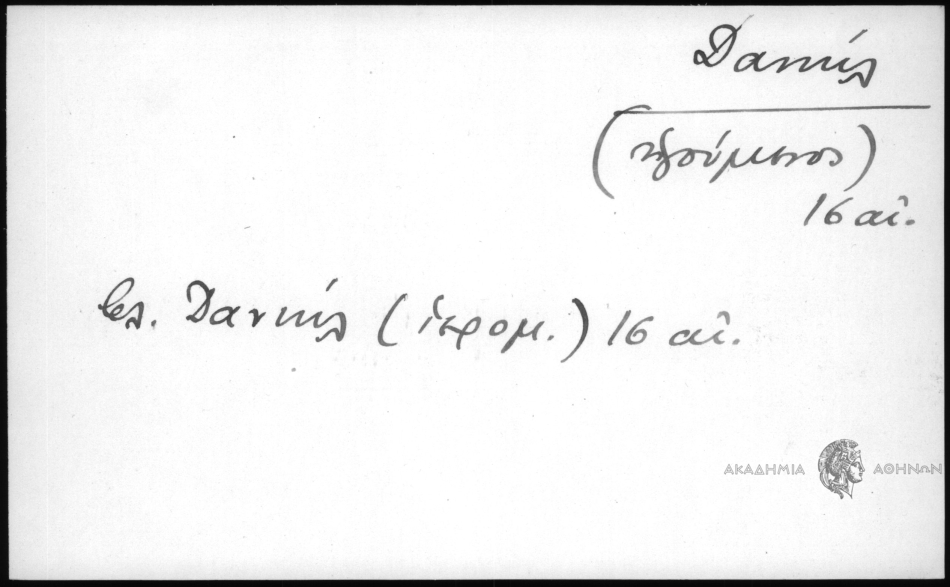 Δανιήλ
(ἡγούμενος)
16 αἰ.
βλ. Δανιήλ (ἱερομ.) 16 αἰ.
ΑΚΑΔΗΜΙΑ ΑΘΗΝΩΝ